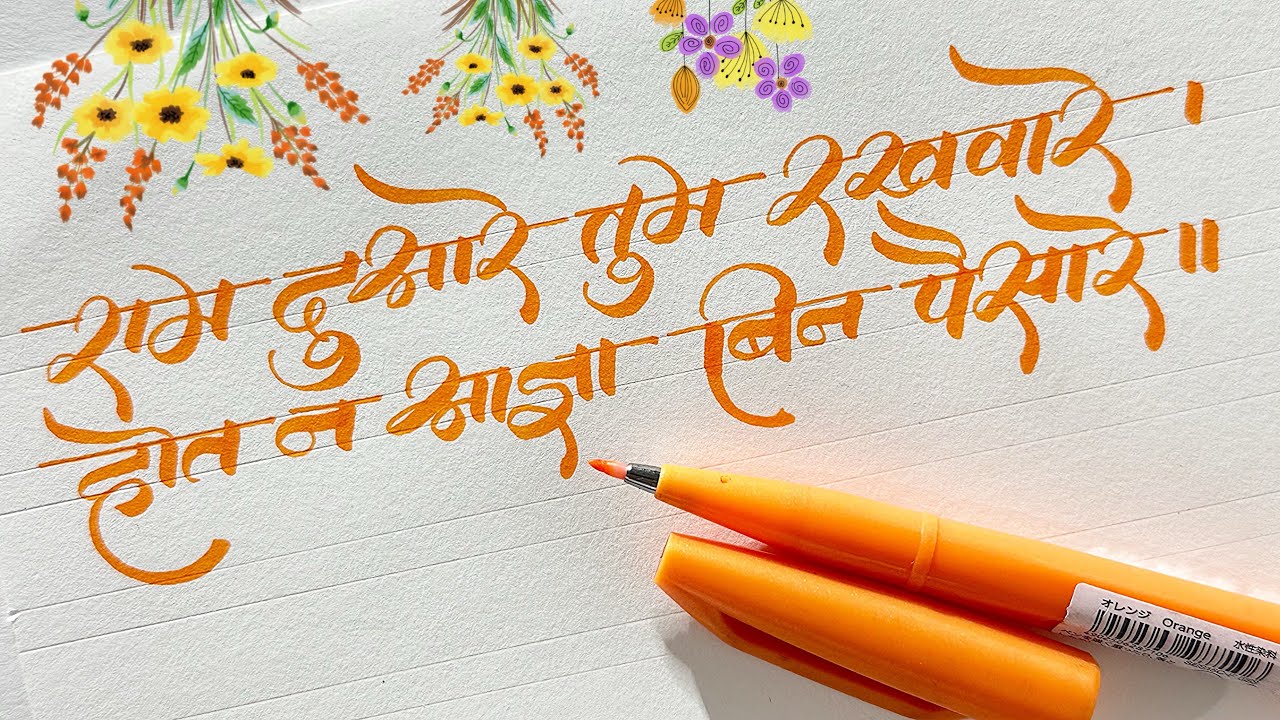 राम दुआरे तुम रखवारे ।
होत न आज्ञा बिन पैसारे ॥
オレンジ Orange 水性染料